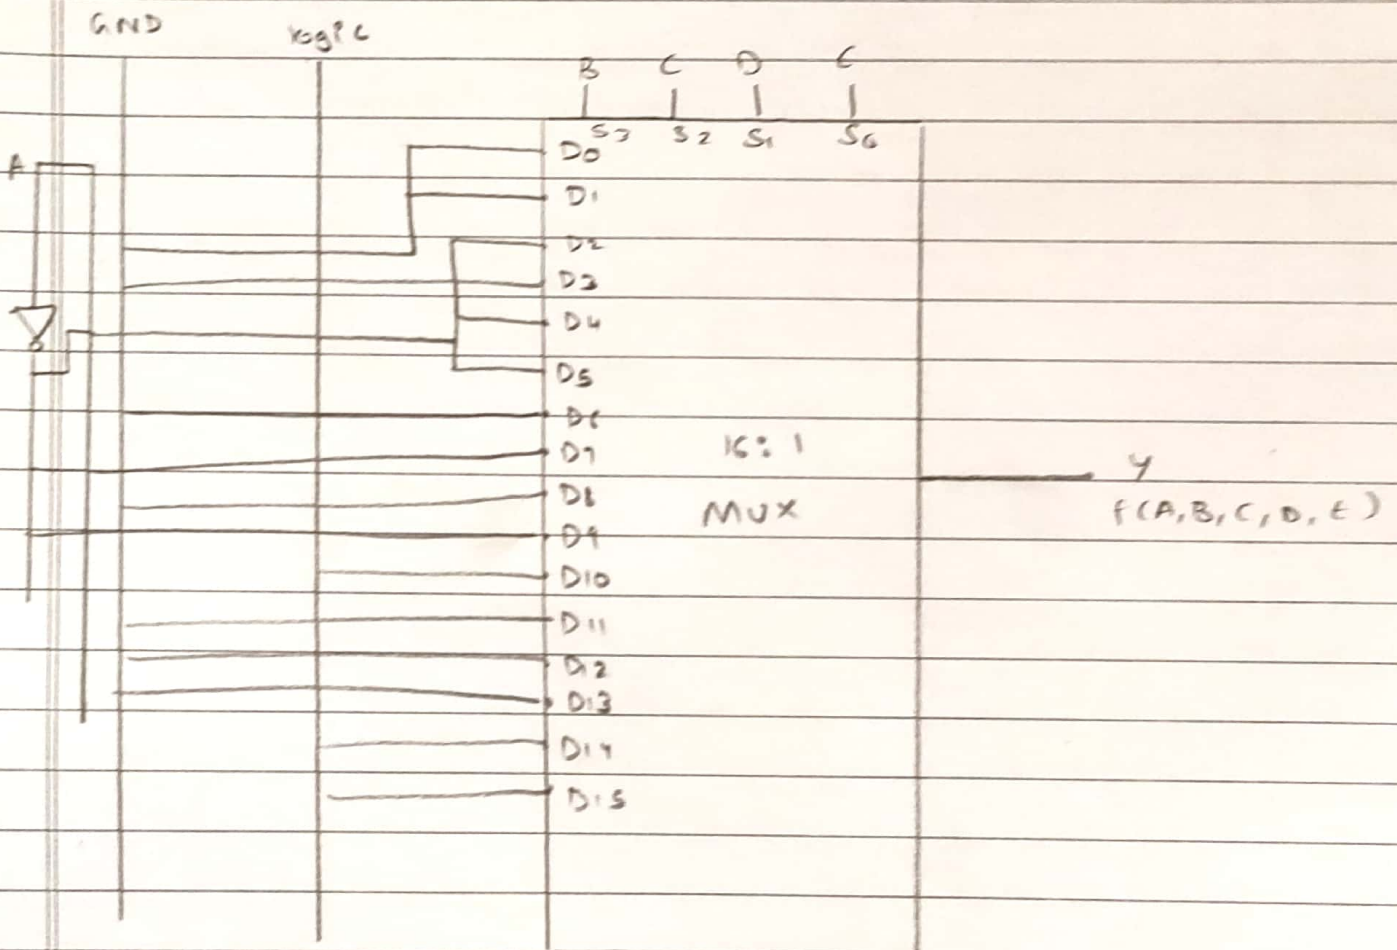 GND
logic
B C D E
S3 S2 S1 S0
A
D0
D1
D2
D3
D4
D5
D6
D7
D8
D9
D10
D11
D12
D13
D14
D15
16:1
MUX
Y
f(A,B,C,D,E)